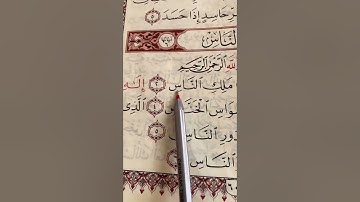 رِّ حَاسِدٍ إِذَا حَسَدَ ٥
النَّاسِ
للَّهِ الرَّحْمَٰنِ الرَّحِيمِ
مَلِكِ النَّاسِ ٢ إِلَٰهِ
وَاسِ الْخَنَّاسِ ٤ الَّذِي
دُورِ النَّاسِ ٥
النَّاسِ ٦